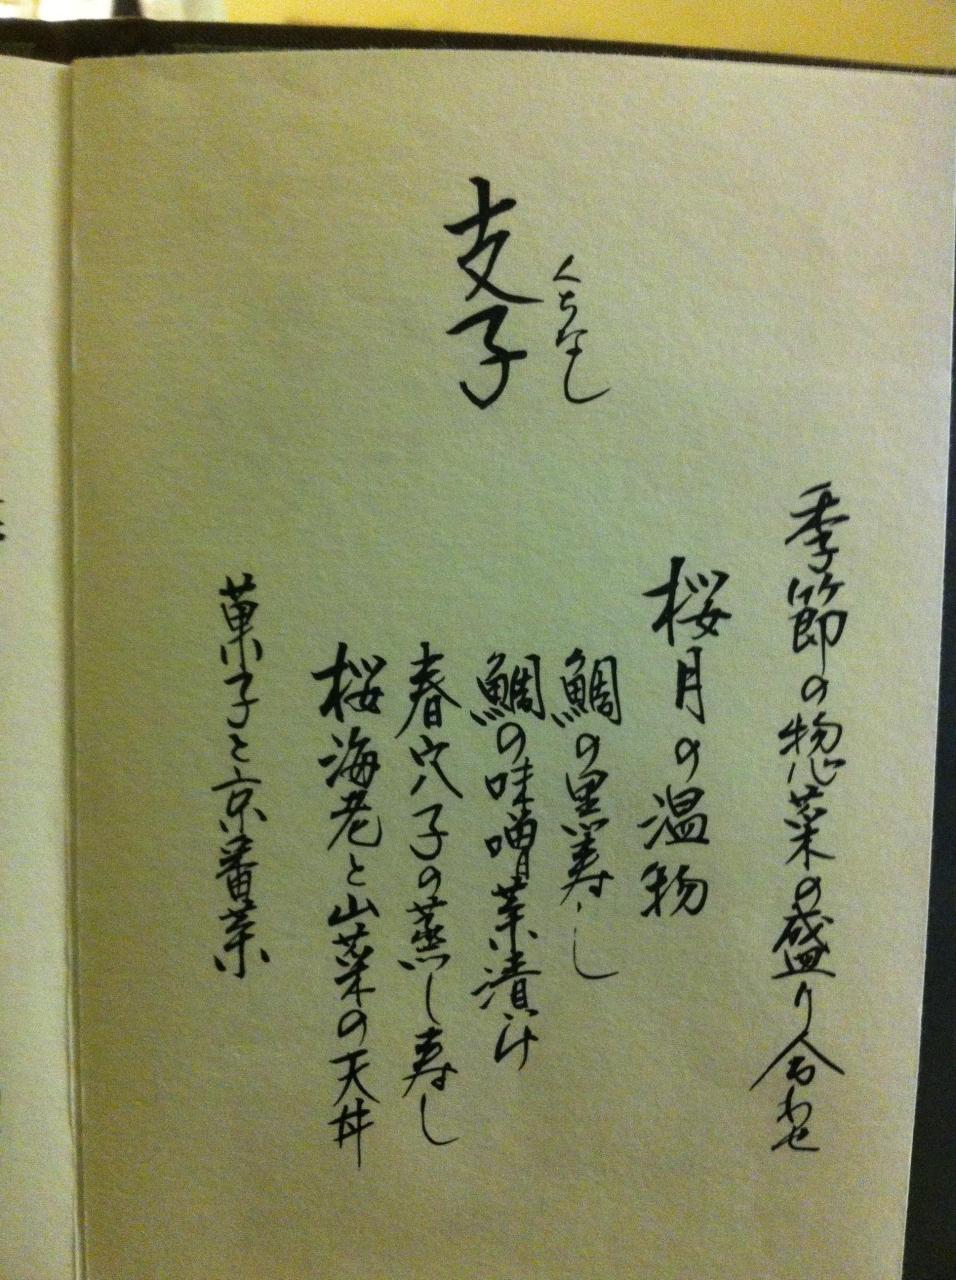 支子
くちなし
季節の惣菜の盛り合わせ
桜月の温物
鯛の黒寿し
鯛の味噌茶漬け
春穴子の蒸し寿し
桜海老と山菜の天丼
菓子と京番茶